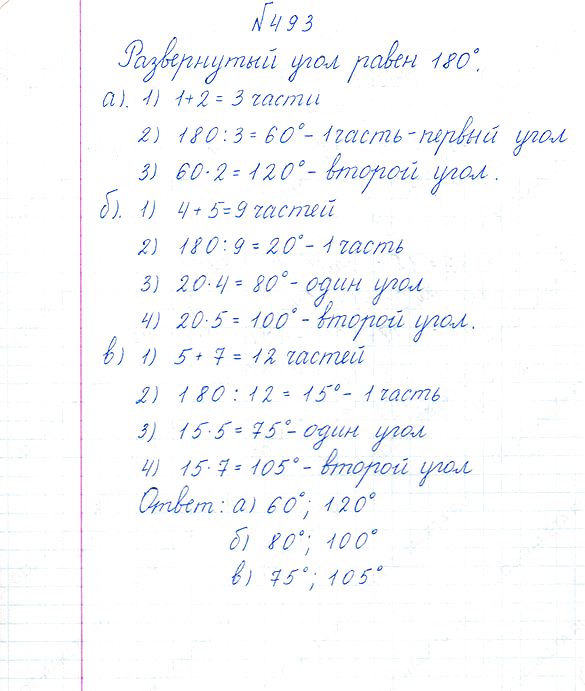 №493
Развернутый угол равен 180°.
а). 1) 1+2=3 части
2) 180:3=60°- 1 часть - первый угол
3) 60·2=120°- второй угол.
б). 1) 4+5=9 частей
2) 180:9=20°- 1 часть
3) 20·4=80°- один угол
4) 20·5=100°- второй угол.
в) 1) 5+7=12 частей
2) 180:12=15°- 1 часть
3) 15·5=75°- один угол
4) 15·7=105°- второй угол
Ответ: а) 60°; 120°
б) 80°; 100°
в) 75°; 105°